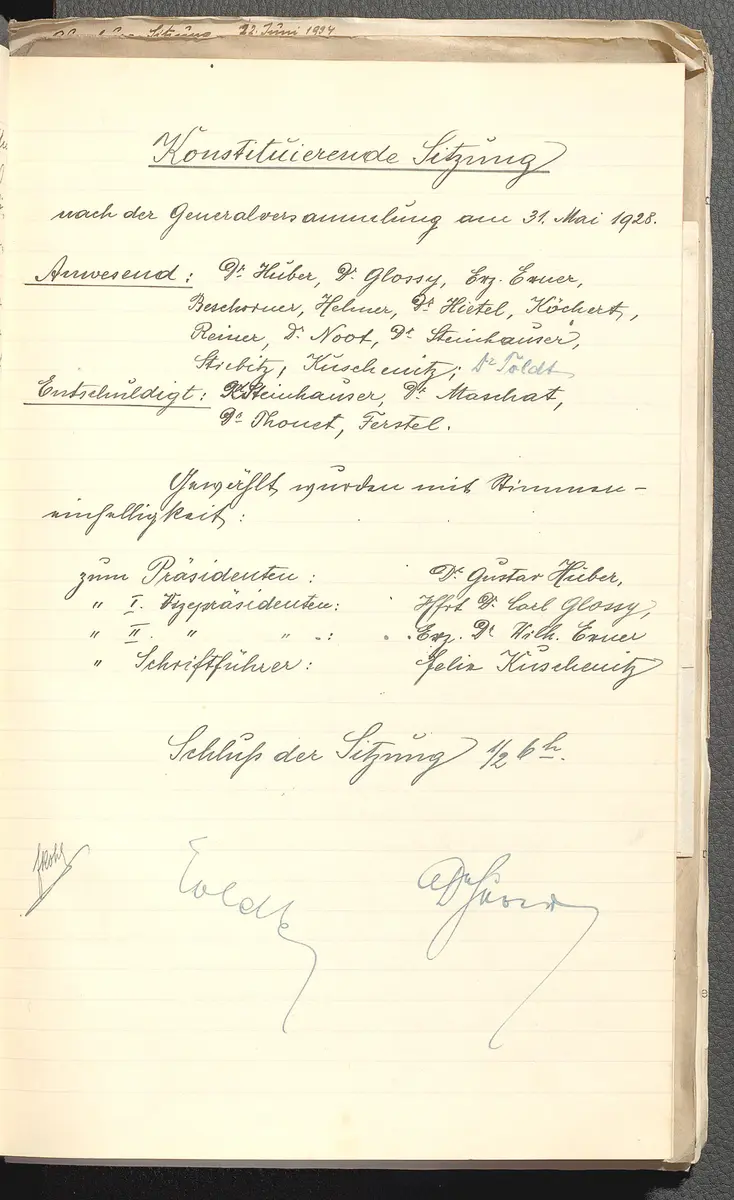 Sitzung 22. Juni 1934
Konstituierende Sitzung
nach der Generalversammlung am 31. Mai 1928.
Anwesend: Dr. Huber, Dr. Glossy, Exz. Exner,
Beschorner, Helmer, Dr. Hietel, Köchert,
Reiner, Dr. Noot, Dr. Steinhauser,
Stiebitz, Kuschenitz; Dr Toldt
Entschuldigt: Steinhauser, Dr. Maschat,
Dr. Thonet, Ferstel.
Gewählt wurden mit Stimmen-
einhelligkeit:
zum Präsidenten: Dr. Gustav Huber,
" I. Vizepräsidenten: Hfrt Dr. Carl Glossy,
" II. " " : Exz. Dr. Wilh. Exner
" Schriftführer: Felix Kuschenitz
Schluß der Sitzung 1/2 6 h.
Toldt Dr Huber